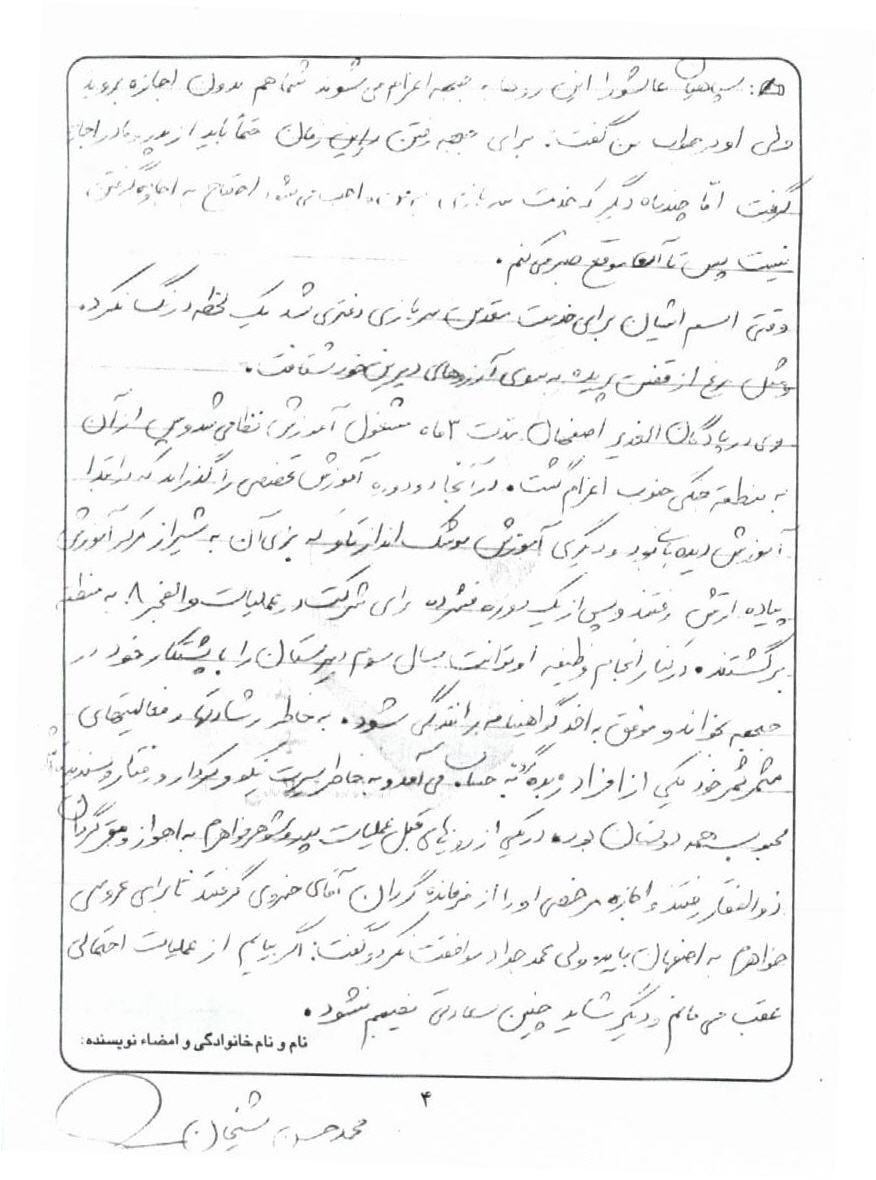 که: سپاهیان عاشورا این روزها به جبهه اعزام می‌شوند شما هم بدون اجازه بروید
ولی او در جواب من گفت: برای جبهه رفتن در این زمان حتماً باید از پدر و مادر اجازه
گرفت امّا چند ماه دیگر که خدمت سربازی بر من واجب می‌شود احتیاج به اجازه گرفتن
نیست پس تا آن موقع صبر می‌کنم.
وقتی اسم ایشان برای خدمت مقدس سربازی دفتری شد یک لحظه درنگ نکرده
و مثل مرغ از قفس پریده به سوی آرزوهای دیرین خود شتافت.
وی در پادگان الغدیر اصفهان مدت ۳ ماه مشغول آموزش نظامی شد و پس از آن
به منطقه جنگی جنوب اعزام گشت. در آنجا دو دوره آموزش تخصصی را گذراند که در ابتدا
آموزش دیده‌بانی بود و دیگری آموزش موشک انداز تاو که برای آن به شیراز مرکز آموزش
پیاده ارتش رفتند و پس از یک دوره فشرده برای شرکت در عملیات والفجر ۸ به منطقه
برگشتند. در کنار انجام وظیفه او توانست سال سوم دبیرستان را با پشتکار خود در
جبهه بخواند و موفق به اخذ گواهینامه رانندگی شود. به خاطر رشادتها و فعالیتهای
مثمر ثمر خود یکی از افراد زبده گردان به حساب می‌آمد و به خاطر سیرت نیکو و کردار و رفتار
محبوب همه دوستان بود. در یکی از روزهای قبل عملیات پدر و شوهر خواهرم به اهواز و مقر گردان
ذوالفقار رفتند و اجازه مرخصی او را از فرمانده گردان آقای خسروی گرفتند تا برای عروسی
خواهرم به اصفهان بیاید ولی محمد جواد موافقت نکرد و گفت: اگر بیایم از عملیات احتمالی
عقب می‌مانم و دیگر شاید چنین سعادتی نصیبم نشود.
نام و نام خانوادگی و امضاء نویسنده:
۴
محمد حسن شیخان